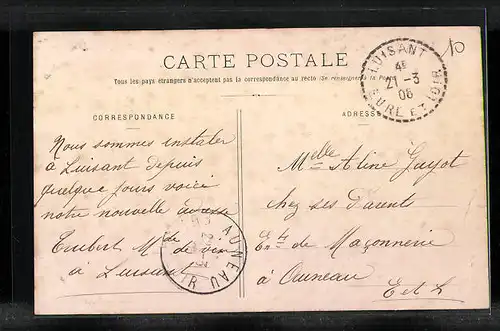 CARTE POSTALE
Tous les pays étrangers n'acceptent pas la correspondance au recto (Se renseigner à la Poste)
CORRESPONDANCE
Nous sommes instaler
à Luisant depuis
quelque jours voici
notre nouvelle adresse
Imbert Mde de vin
à Luisant
ADRESSE
Melle Aline Guyot
chez ses Parent
En4 de Maçonnerie
à Auneau
E et L
LUISANT
21-3
06
EURE ET LOIR
AUNEAU